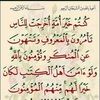 كُنتُمْ خَيْرَ أُمَّةٍ أُخْرِجَتْ لِلنَّاسِ
تَأْمُرُونَ بِالْمَعْرُوفِ وَتَنْهَوْنَ
عَنِ الْمُنكَرِ وَتُؤْمِنُونَ بِاللَّهِ
وَلَوْ ءَامَنَ أَهْلُ الْكِتَٰبِ لَكَانَ
خَيْرًا لَّهُم مِّنْهُمُ الْمُؤْمِنُونَ